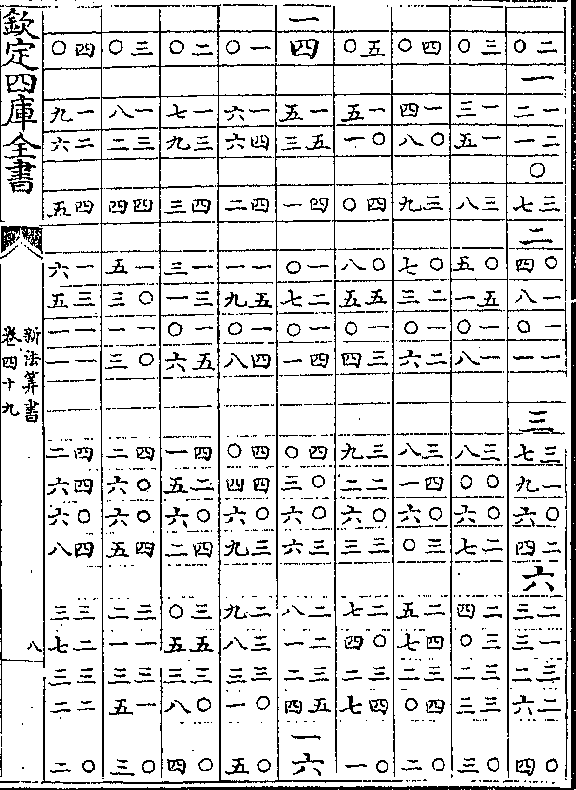 二〇 一 一二 二一 〇 三七 二 〇四 一八 一〇 一一 三 三七 一九 〇六 二四 六 二三 一三 三二 二六 〇四
三〇 一三 一五 三八 〇五 五一 一〇 一八 三八 〇〇 〇六 二七 二四 三〇 三二 三三 〇三
四〇 一四 〇八 三九 〇七 二三 一〇 二六 三八 四一 〇六 三〇 二五 四七 三二 四〇 〇二
五〇 一五 〇一 四〇 〇八 五五 一〇 三四 三九 二二 〇六 三三 二七 〇四 三二 四七 〇一
一四 一五 五三 四一 一〇 二七 一〇 四一 四〇 〇三 〇六 三六 二八 二一 三二 五四 一六
一〇 一六 四六 四二 一一 五九 一〇 四八 四〇 四四 〇六 三九 二九 三八 三三 〇一 〇五
二〇 一七 三九 四三 一三 三一 一〇 五六 四一 二五 〇六 四二 三〇 五五 三三 〇八 〇四
三〇 一八 三二 四四 一五 〇三 一一 〇三 四二 〇六 〇六 四五 三二 一一 三三 一五 〇三
四〇 一九 二六 四五 一六 三五 一一 一一 四二 四六 〇六 四八 三三 二七 三三 二二 〇二
欽定四庫全書
新法算書
卷四十九
八